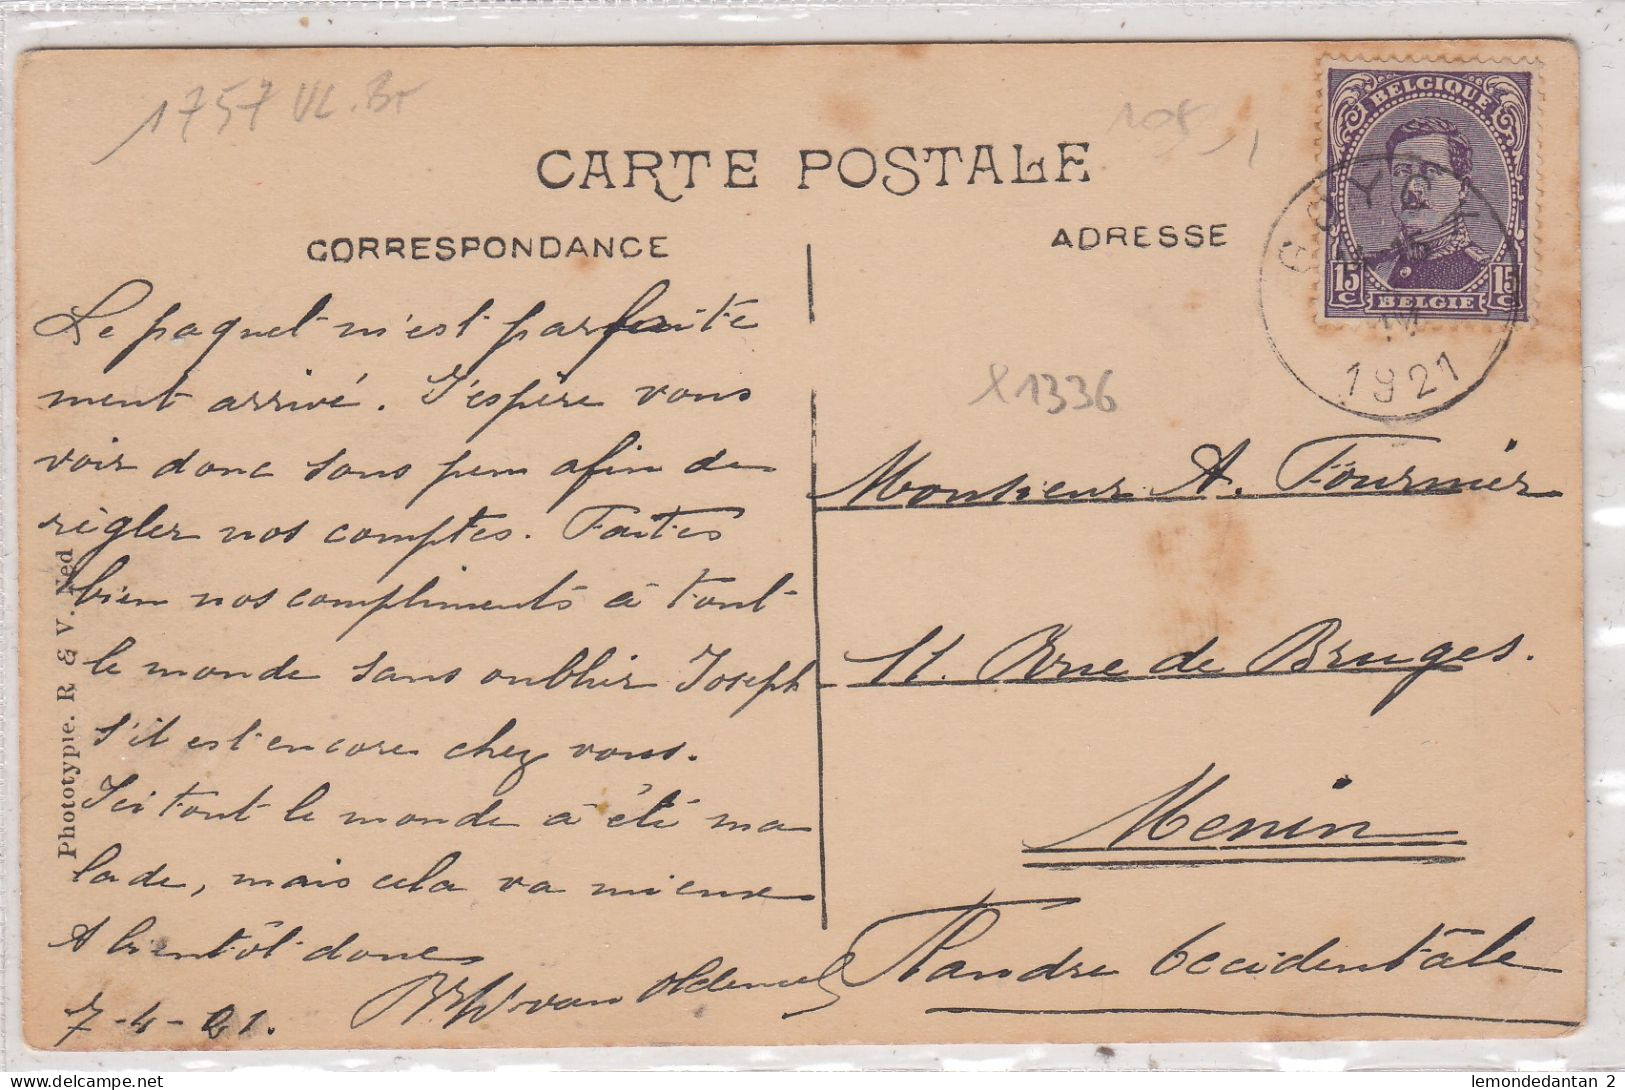 1757 VL. Br
108,
CARTE POSTALE
BELGIQUE
15 C
15 C
BELGIE
GOYCK
14-15
IV
1921
CORRESPONDANCE
ADRESSE
Le paquet m'est parfaite
ment arrivé. J'espère vous
voir donc sous peu afin de
règler nos comptes. Faites
bien nos compliments à tout
le monde sans oublier Joseph
s'il est encore chez vous.
Ici tout le monde à été ma
lade, mais cela va mieux
A bientôt donc
van
7-4-21.
X1336
Monsieur A. Fournier
Rue de Bruges.
Menin
Flandre Occidentale
Phototypie. R & V. Ned
lemondedantan 2